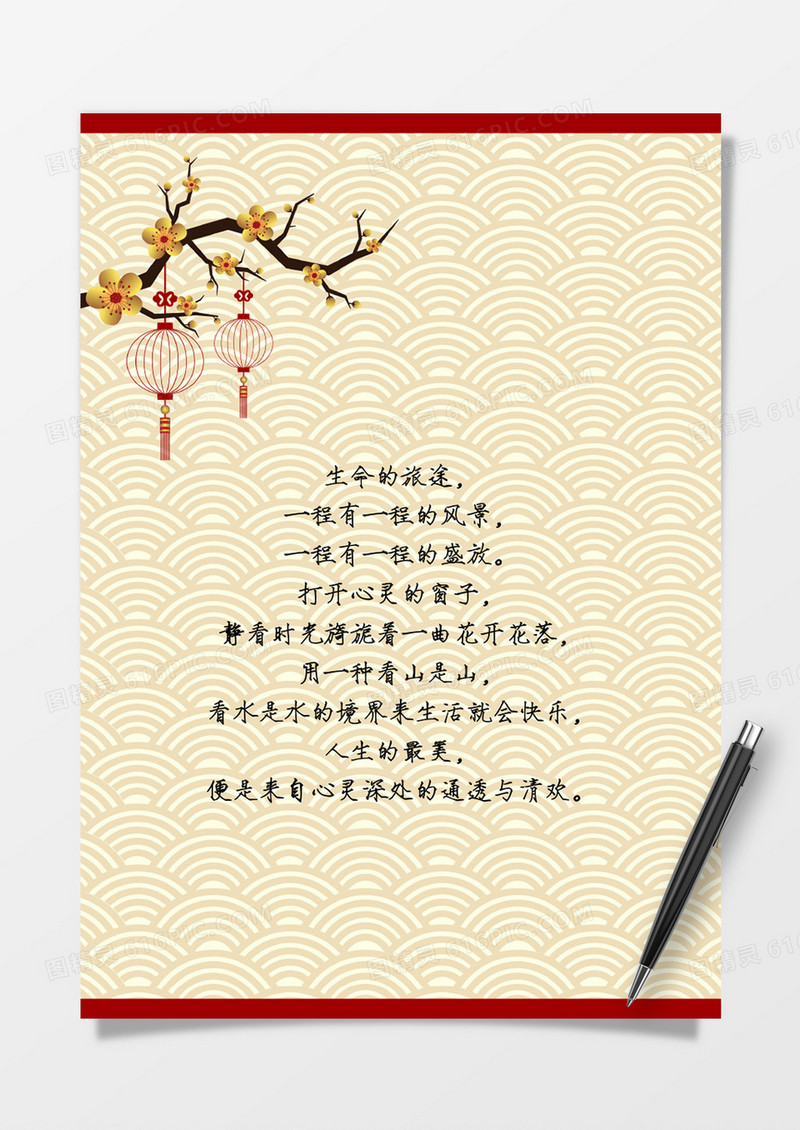 生命的旅途，
一程有一程的风景，
一程有一程的盛放。
打开心灵的窗子，
静看时光旖旎着一曲花开花落，
用一种看山是山，
看水是水的境界来生活就会快乐，
人生的最美，
便是来自心灵深处的通透与清欢。
图精灵 616PIC.COM